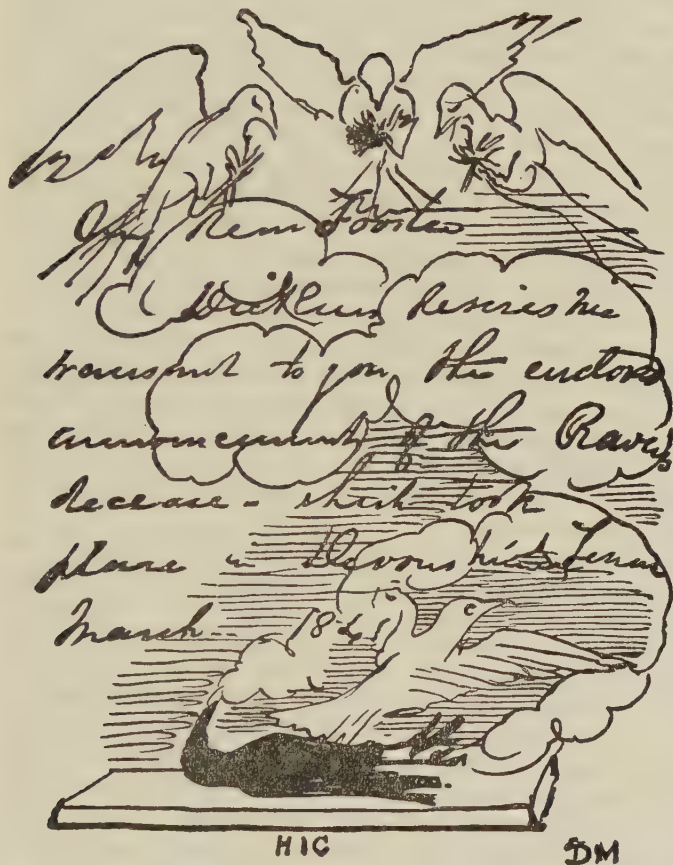 My dear Forster
Dickens desires me
transmit to you the enclosed
announcement of the Raven's
decease - which took
place in Devonshire Terrace
March - 184
HIC DM